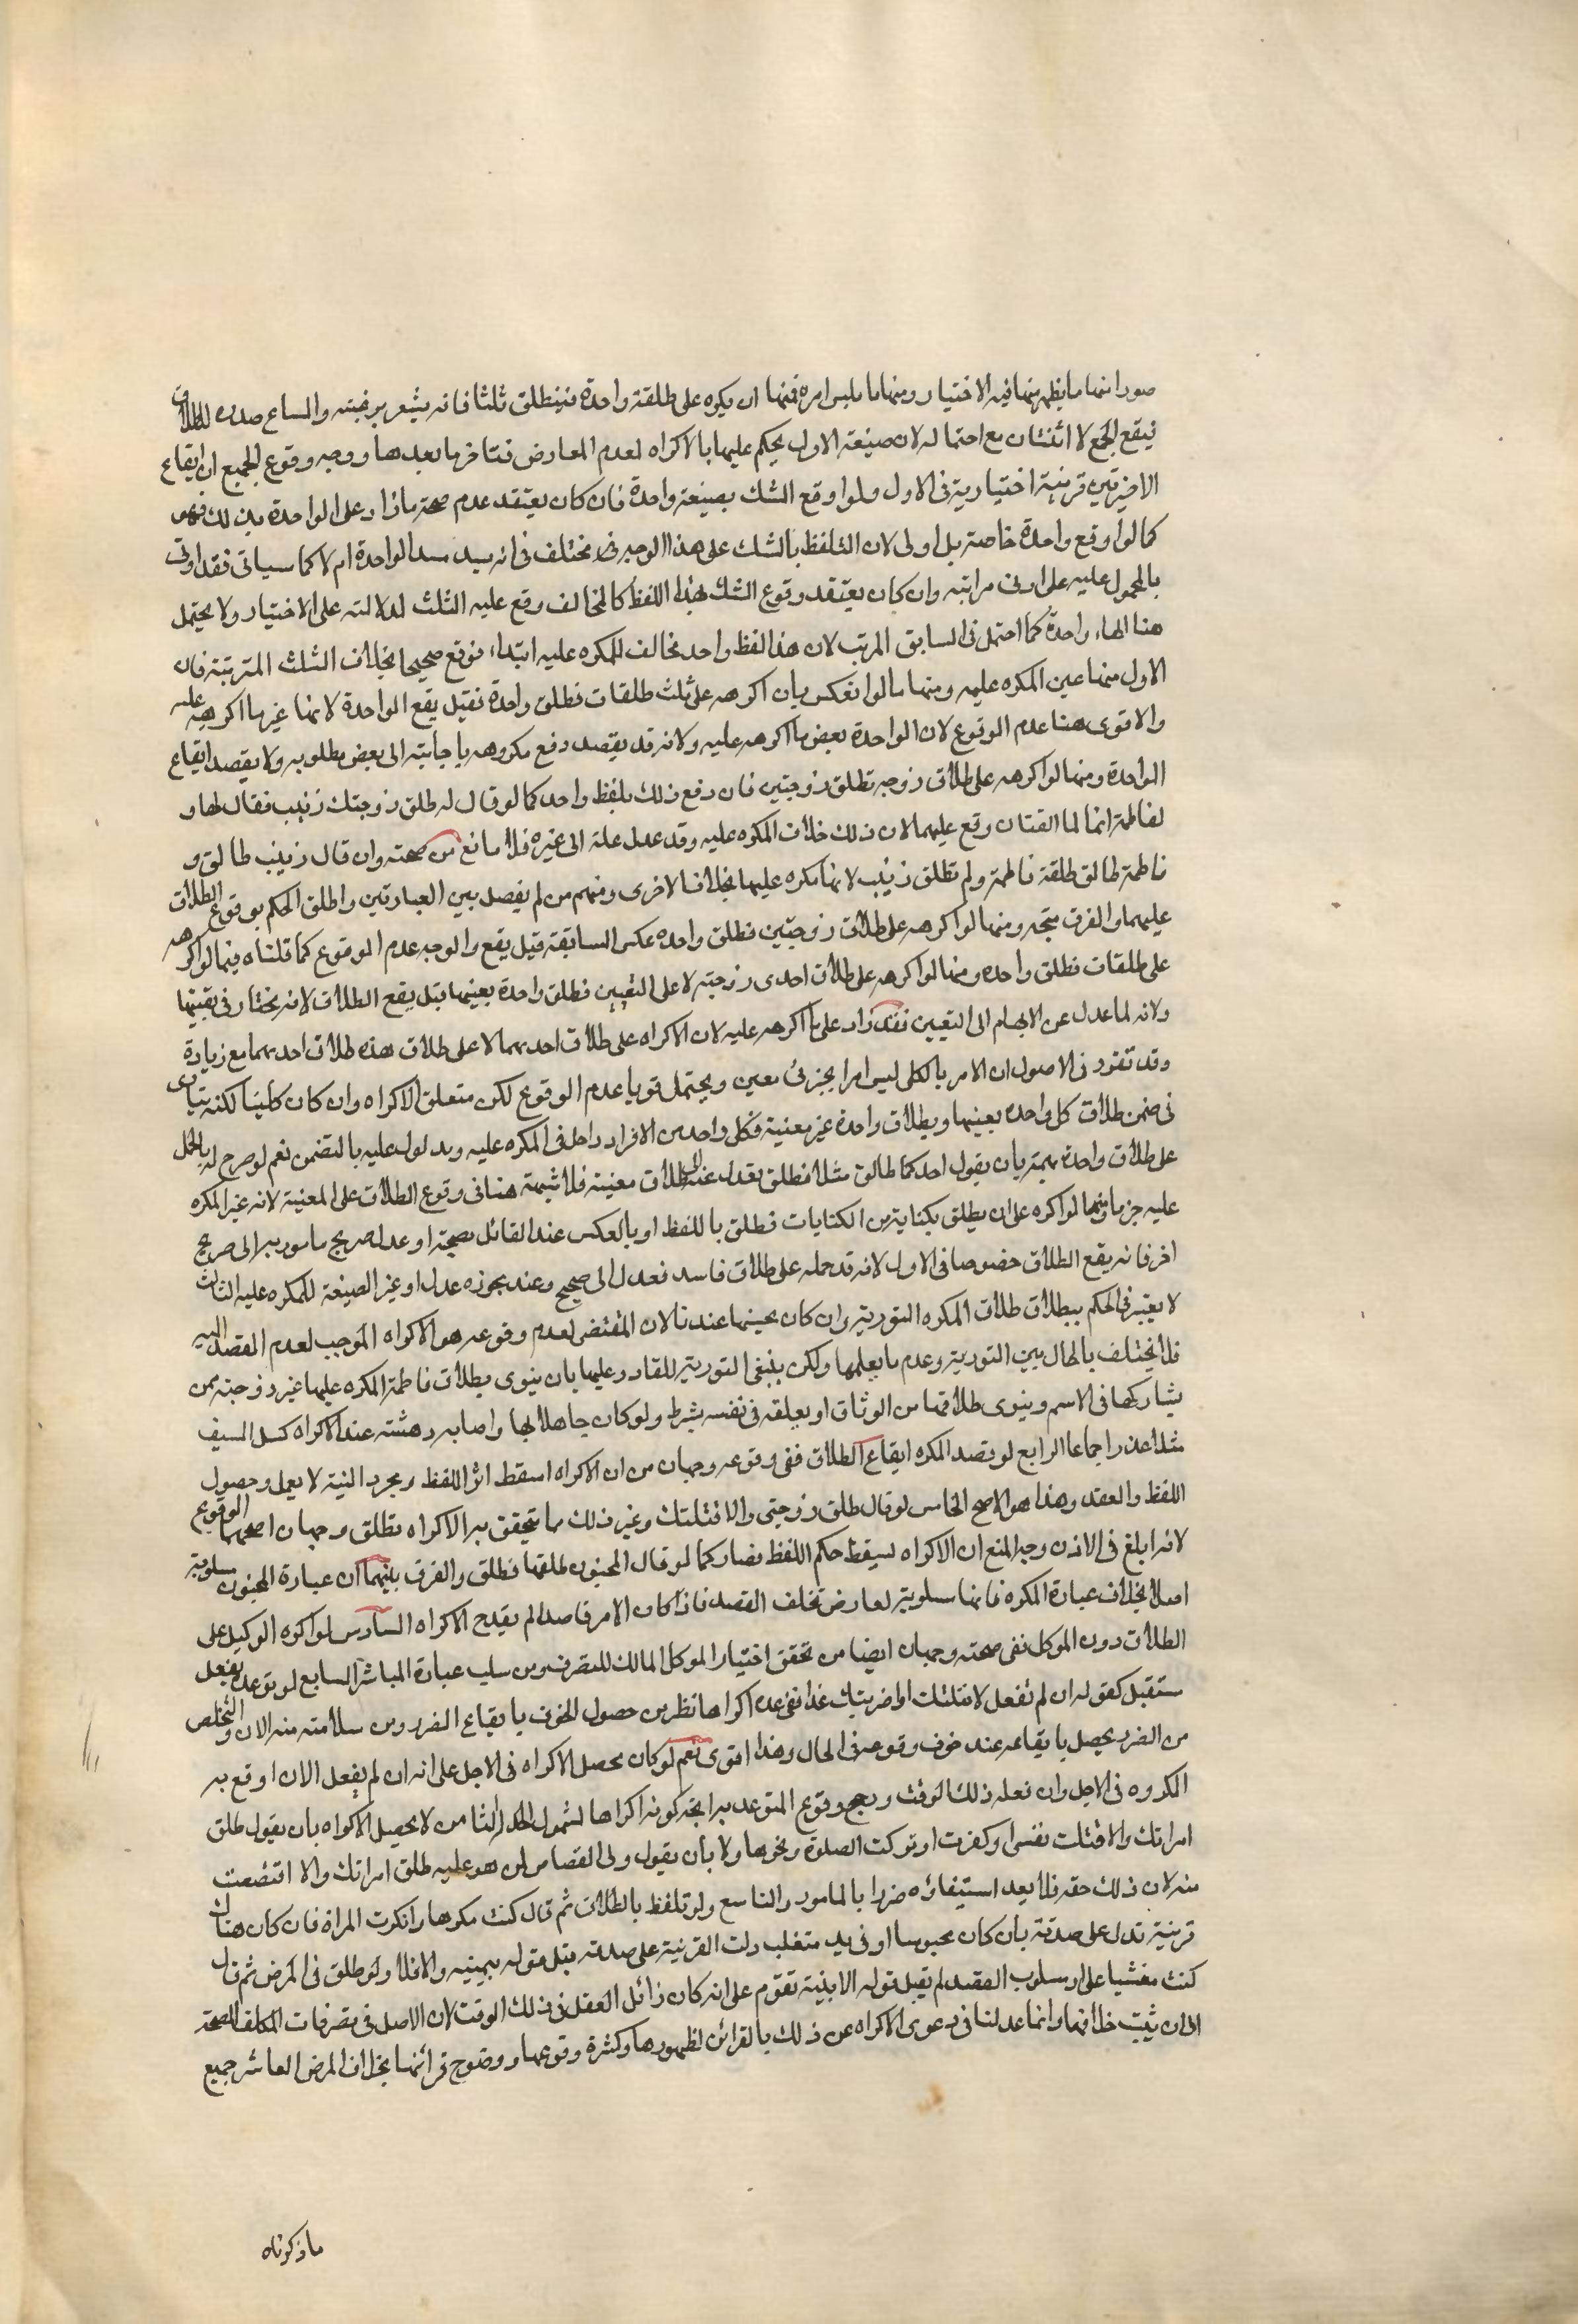 صورا منها ما يظهر منها فيه الاختيار ومنها ما يلبس امره فمنها ان يكره على طلقة واحدة فيطلق ثلثا فانه يشعر برغبته واتساع صدره للطلاق
فيقع الجمع لا اثنتان مع احتماله لان صيغة الاول يحكم عليها بالاكراه لعدم المعارض فتتاخر ما بعدها ووجه وقوع الجميع ان ايقاع
الاخيرتين قرينة اختيارية في الاول ولو اوقع الثلث بصيغة واحدة فان كان يعتقد عدم صحة ما زاد على الواحدة بذلك فهو
كما لو اوقع واحدة خاصة بل اولى لان التلفظ بالثلث على هذا الوجه مختلف في انه يفيد الواحدة ام لا كما سياتى فقد اوتى
بالمحمول عليه على ادنى مراتبه وان كان يعتقد وقوع الثلث بهذا اللفظ كالمخالف وقع عليه الثلث لدلالته على الاختيار ولا يحتمل
هنا الهاء واحدة كما احتمل في السابق المرتب لان هذا لفظ واحد مخالف للمكره عليه ابتداء فوقع صحيحا بخلاف الثلث المترتبة فان
الاول منها عين المكره عليه ومنها ما لو انعكس بان اكرهه على ثلث طلقات فطلق واحدة فقيل يقع الواحدة لانها غير ما اكرهه عليه
والاقوى هنا عدم الوقوع لان الواحدة بعض ما اكرهه عليه ولانه قد يقصد دفع مكروهه باجابته الى بعض مطلوبه ولا يقصد ايقاع
الواحدة ومنها لو اكرهه على طلاق زوجه فطلق زوجتين فان وقع ذلك بلفظ واحد كما لو قال له طلق زوجتك زينب فقال لها و
لفاطمة انتما طالقتان وقع عليهما لان ذلك خلاف المكره عليه وقد عدل عنه الى غيره فلا مانع من صحته وان قال زينب طالق و
فاطمة طالق طلقة فاطمة ولم تطلق زينب لانها مكره عليها بخلاف الاخرى ومنهم من لم يفصل بين العبارتين واطلق الحكم بوقوع الطلاق
عليهما والفرق متجه ومنها لو اكرهه على طلاق زوجتين فطلق واحدة عكس السابقة فقيل يقع والوجه عدم الوقوع كما قلناه فيما لو اكرهه
على طلقات فطلق واحده ومنها لو اكرهه على طلاق احدى زوجتيه لا على التعيين فطلق واحدة بعينها فقيل يقع الطلاق لانه مختار في تعيينها
ولانه لما عدل عن الابهام الى التعيين فقد زاد على ما اكرهه عليه لان الاكراه على طلاق احدهما لا على طلاق هذه طلاق احدهما مع زيادة
وقد تقرر في الاصول ان الامر بالكلى ليس امرا بجزئى معين ويحتمل قويا عدم الوقوع لكن متعلق الاكراه وان كان كليا لكنه يتادى
في ضمن طلاق كل واحدة بعينها وبطلاق واحدة غير معينة فكل واحد من الافراد داخل في المكره عليه ومدلول عليه بالتضمن نعم لو صرح له بالحمل
على طلاق واحدة مبهمة بان يقول احدكما طالق مثلا فطلق بعدل عنه الى طلاق معينة فلا شبهة هنا في وقوع الطلاق على المعينة لانه غير المكره
عليه جزما ومنها لو اكره على ان يطلق بكناية من الكنايات فطلق باللفظ او بالعكس عند القائل بصحته او عدل صريح مامور به الى صريح
اخر فانه يقع الطلاق خصوصا في الاول لانه قد حمله على طلاق فاسد فعدل الى صحيح وعند مجوزه عدل او غير الصيغة للمكره عليه الثالث
لا يعتبر في الحكم ببطلاق طلاق المكره التورية وان كان يحسنها عندنا لان المقتضى لعدم وقوعه هو الاكراه الموجب لعدم القصد اليه
فلا يختلف بالحال بين التورية وعدم ما يعلمها ولكن ينبغى التورية للقادر عليها بان ينوى بطلاق فاطمة المكره عليها غير زوجته ممن
يشاركها في الاسم وينوى طلاقها من الوثاق او يعلقه في نفسه بشرط ولو كان جاهلا بها واصابه دهشته عند الاكراه كسل السيف
مثلا عذر اجماعا الرابع لو قصد المكره ايقاع الطلاق ففى وقوعه وجهان من ان الاكراه اسقط اثر اللفظ ومجرد النية لا يعمل وحصول
اللفظ والعقد وهذا هو الاصح الخامس لو قال طلق زوجتى والا قتلتك وغير ذلك مما يتحقق به الاكراه فطلق وجهان اصحهما الوقوع
لانه ابلغ في الاذن وجه المنع ان الاكراه يسقط حكم اللفظ فصار كما لو قال المجنون طلقها فطلق والفرق بينهما ان عبارة المجنون مسلوبة
اصلا بخلاف عبارة المكره فانها مسلوبة لعارض تخلف القصد فاذا كان الامر قاصدا لم يقدح الاكراه السادس لو اكره الوكيل على
الطلاق دون الموكل ففى صحته وجهان ايضا من تحقق اختيار الموكل المالك للتصرف ومن سلب عبارة المباشر السابع لو توعده بفعل
مستقبل كقوله ان لم تفعل لاقتلنك او اضربنك غدا ففى عده اكراها نظر من حصول الخوف بايقاع الضرر ومن سلامته منه الان والتخلص
من الضرر يحصل بايقاعه عند خوف وقوعه في الحال وهذا اقوى نعم لو كان محصل الاكراه في الاجل على انه ان لم يفعل الان اوقع به
المكروه في الاجل وان فعله ذلك الوقت ورجح وقوع المتوعد به اتجه كونه اكراها لشمول الحد له الثامن لا يحصل الاكراه بان يقول طلق
امراتك والا قتلت نفسى او كفرت او تركت الصلوة ونحوها ولا بان يقول ولى القصاص لمن هو عليه طلق امراتك والا اقتصصت
منه لان ذلك حقه فلا يعد استيفائه ضررا بالمامور والتاسع ولو تلفظ بالطلاق ثم قال كنت مكرها وانكرت المراة فان كان هناك
قرينة تدل على صدقه بان كان محبوسا او في يد متغلب دلت القرينة على صدقه قبل قوله بيمينه والا فلا ولو طلق في المرض ثم قال
كنت مغشيا على او مسلوب القصد لم يقبل قوله الا ببينة تقوم على انه كان زائل العقل في ذلك الوقت لان الاصل في تصرفات المكلف الصحة
الى ان يثبت خلافها وانما عدلنا في دعوى الاكراه عن ذلك بالقرائن لظهورها وكثرة وقوعها ووضوح قرائنها بخلاف المرض العاشر جميع
ما ذكرناه